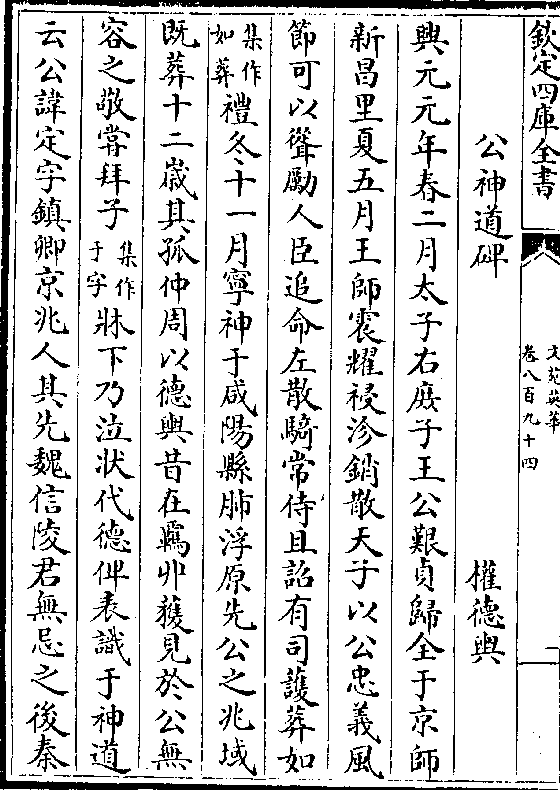 欽定四庫全書
文苑英華
卷八百九十四
公神道碑 權德輿
興元元年春二月太子右庶子王公艱貞歸全于京師
新昌里夏五月王師震耀祲沴銷散天子以公忠義風
節可以聳勵人臣追命左散騎常侍且詔有司護葬如
集作
如葬
禮冬十一月寧神于咸陽縣肺浮原先公之兆域
既葬十二歳其孤仲周以德輿昔在羈丱獲見於公無
容之敬嘗拜子
集作
于字
牀下乃泣狀代德俾表識于神道
云公諱定字鎮卿京兆人其先魏信陵君無忌之後秦